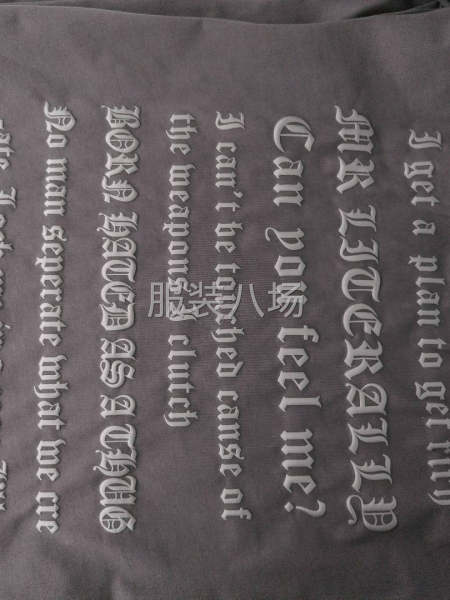 I get a plan to get
MR LITERALLY
Can you feel me?
I can't be touched cause of
the weapons I clutch
BORN HATED AS A THUG
No man seperate what we cre
服装八场